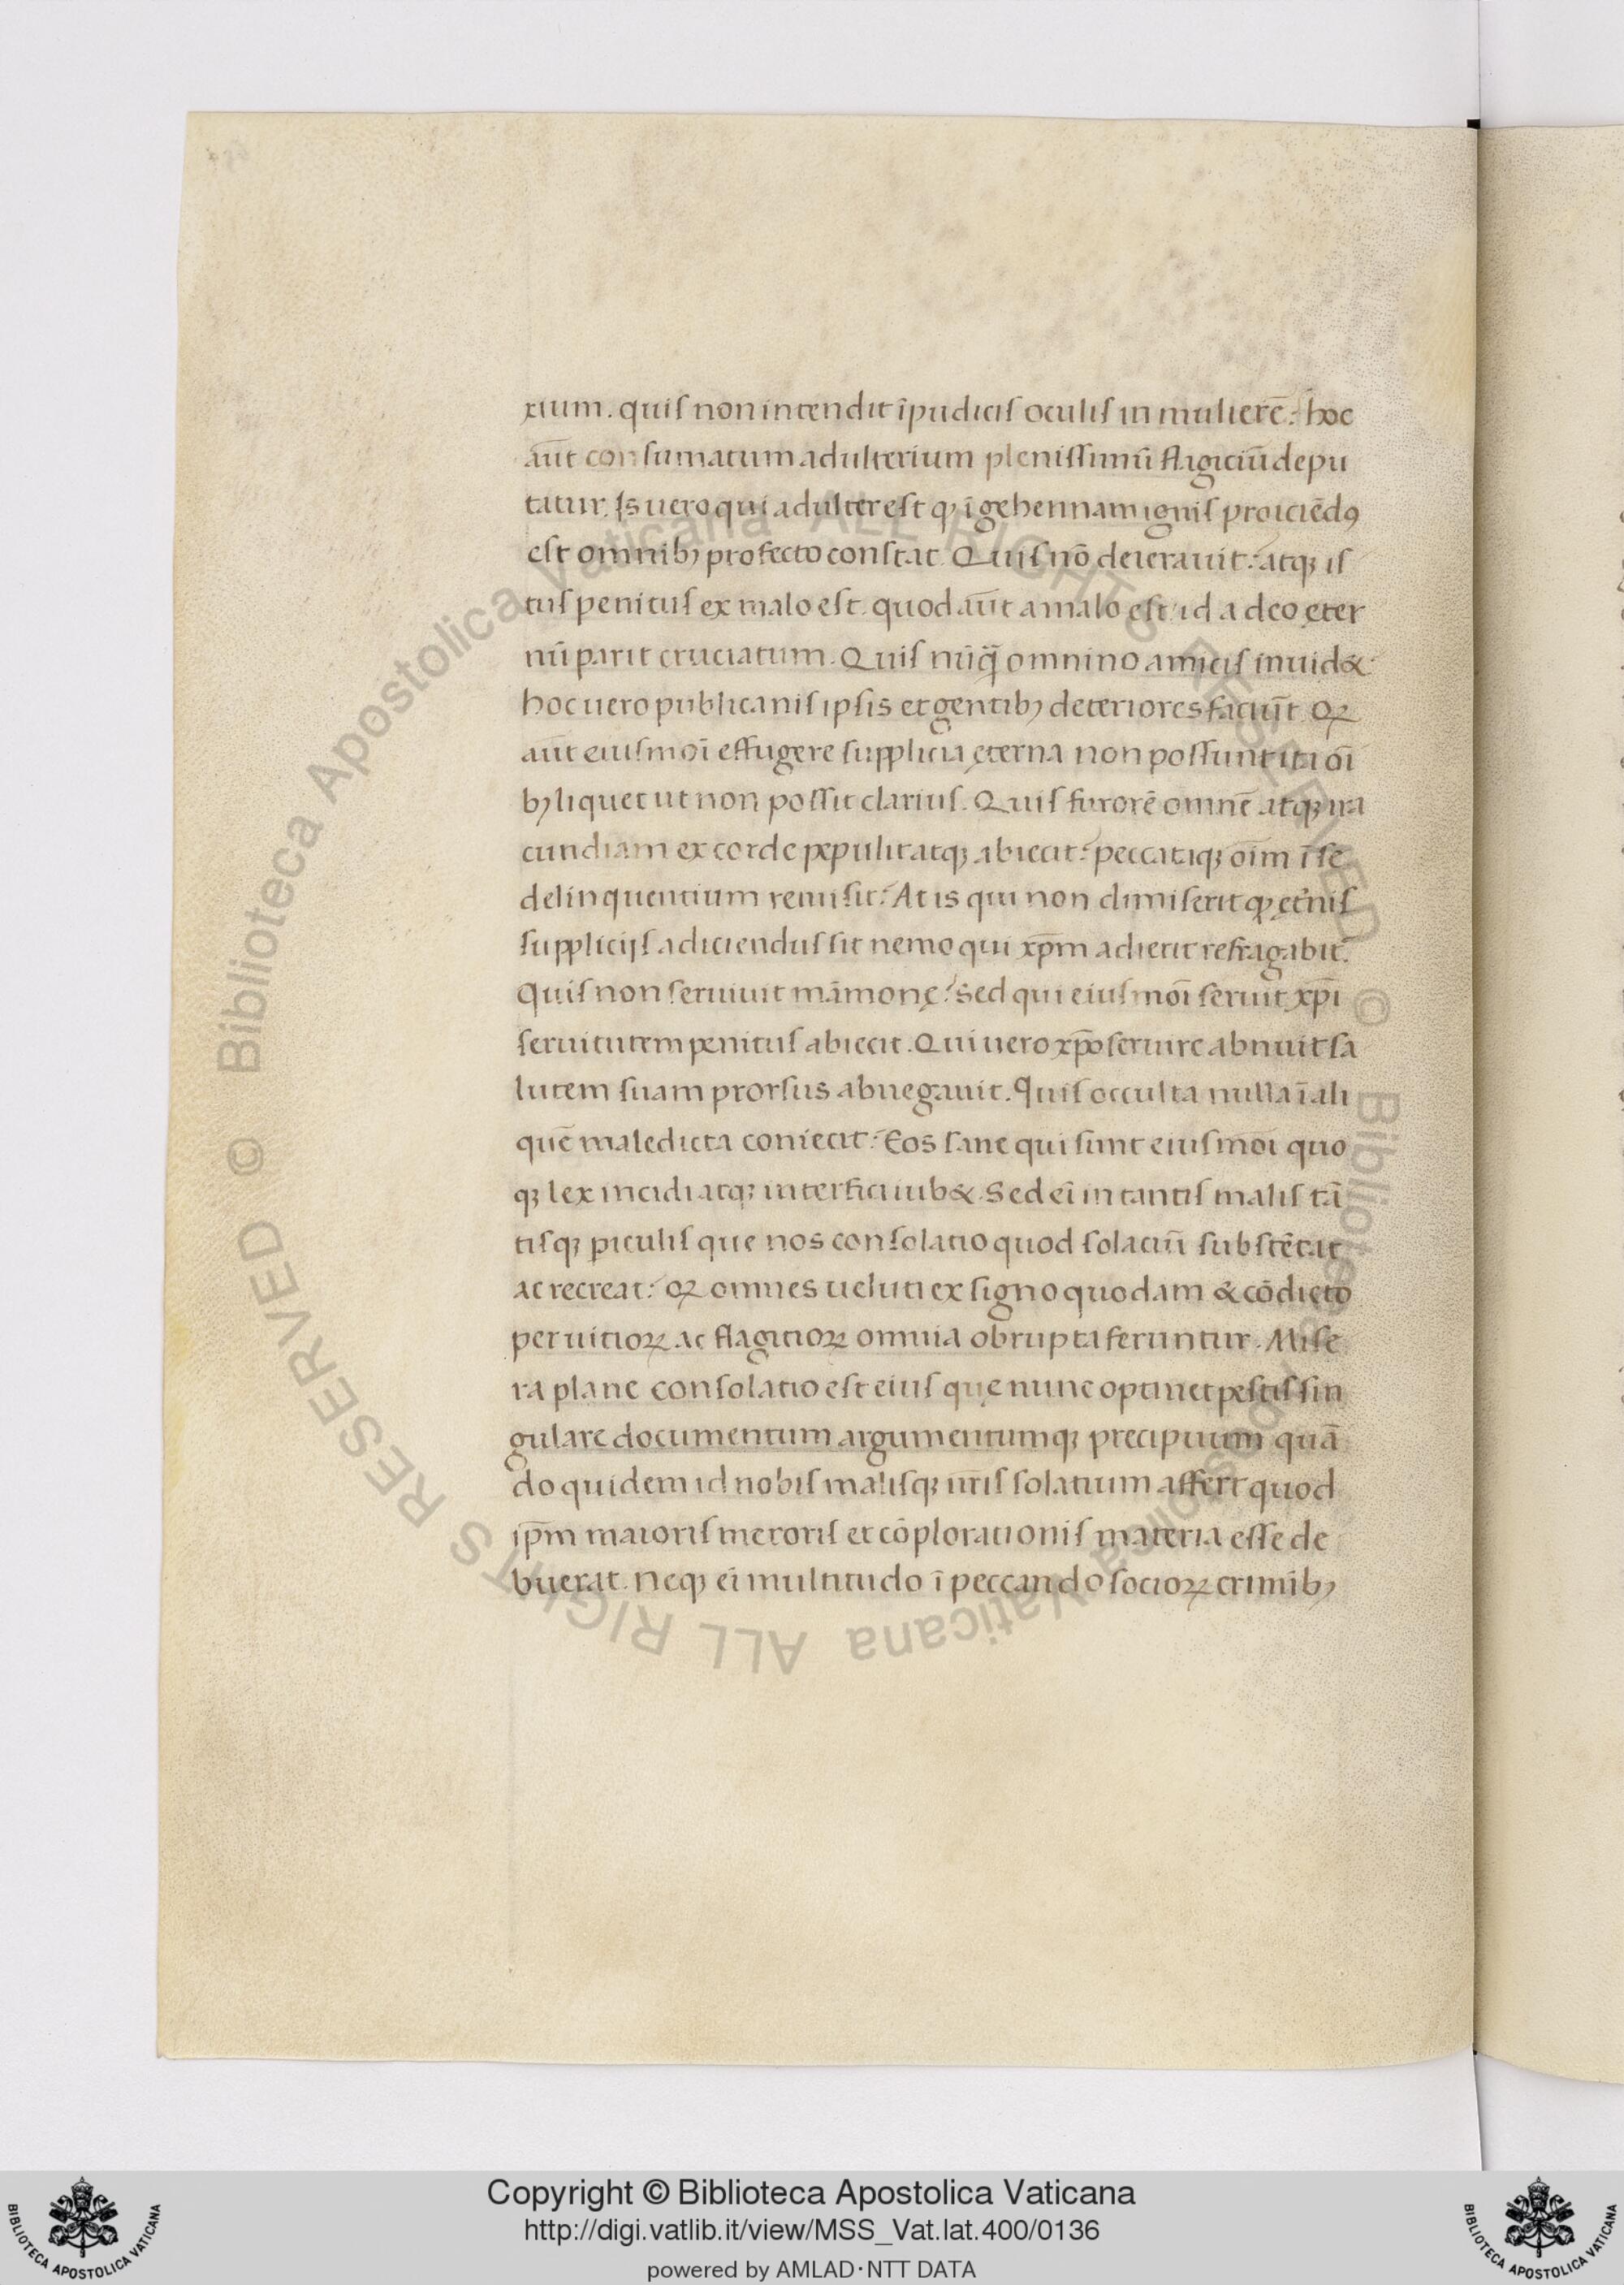 xium. quis non intendit īpudicis oculis in mulierē? hoc
aūt consumatum adulterium plenissimū flagiciū depu
tatur. Is uero qui adulter est ꝙ ī gehennam ignis proiciēdꝰ
est omnibꝫ profecto constat. Quis nō deierauit? atqꝫ is
tus penitus ex malo est. quod aūt a malo est id a deo ęter
nū parit cruciatum. Quis nūq̄ omnino amicis inuid&
hoc uero publicanis ipsis et gentibꝫ deteriores faciūt. Qꝝ
aūt eiusmoī effugere supplicia ęterna non possunt ita oī
bꝫ liquet ut non possit clarius. Quis furorē omnē atqꝫ ira
cundiam ex corde pepulit atqꝫ abiecit? peccataqꝫ oīm ī se
delinquentium remisit? At is qui non dimiserit ꝙ ęt̄nis
supplicijs adiciendus sit nemo qui xp̄m adierit refragabit̄.
Quis non seruiuit māmonę? Sed qui eiusmoī seruit xp̄i
seruitutem penitus abiecit. Qui uero xp̄o seruire abnuit sa
lutem suam prorsus abnegauit. Quis occulta nulla ī ali
quē maledicta coniecit? Eos sane qui sunt eiusmoī quo
qꝫ lex incidi atqꝫ interfici iub&. Sed eī in tantis malis tā
tisqꝫ ꝑiculis que nos consolatio quod solaciū substētat
ac recreat? Qꝝ omnes ueluti ex signo quodam & cōdicto
per uitioꝝ ac flagitioꝝ omnia obrupta feruntur. Mise
ra plane consolatio est eius quę nunc optinet pestis sin
gulare documentum argumentumqꝫ precipuum quā
do quidem id nobis malisqꝫ nr̄is solatium affert quod
ip̄m maioris meroris et cōplorationis materia esse de
buerat. Neqꝫ eī multitudo ī peccando socioꝝ crimibꝫ
Copyright © Biblioteca Apostolica Vaticana
http://digi.vatlib.it/view/MSS_Vat.lat.400/0136
powered by AMLAD·NTT DATA
BIBLIOTECA APOSTOLICA VATICANA
BIBLIOTECA APOSTOLICA VATICANA
© Biblioteca Apostolica Vaticana ALL RIGHTS RESERVED
© Biblioteca Apostolica Vaticana ALL RIGHTS RESERVED